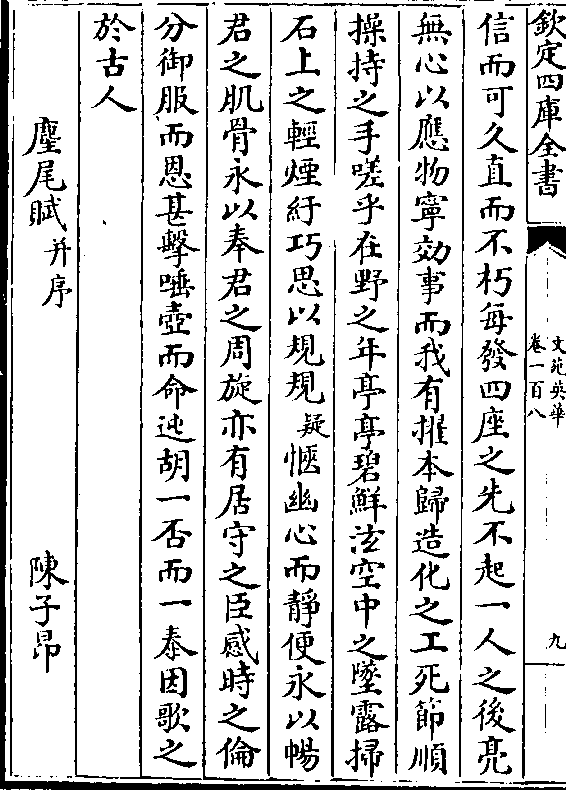 欽定四庫全書
文苑英華
卷一百八
九
信而可久直而不朽每發四座之先不起一人之後亮
無心以應物寧効事而我有擢本歸造化之工死節順
操持之手嗟乎在野之年亭亭碧鮮泫空中之墜露掃
石上之輕煙紆巧思以規規疑愜幽心而靜便永以暢
君之肌骨永以奉君之周旋亦有居守之臣感時之倫
分御服而恩甚擊唾壺而命迍胡一否而一泰因歌之
於古人
麈尾賦并序 陳子昂